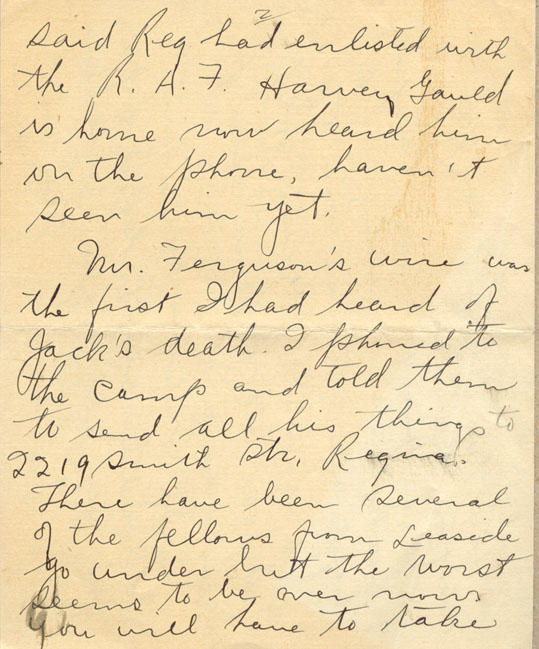 2
said Reg had enlisted with
the R. A. F. Harvey Gauld
is home now heard him
on the phone, haven't
seen him yet.
Mr. Ferguson's wire was
the first I had heard of
Jack's death. I phoned to
the camp and told them
to send all his things to
2219 Smith Str, Regina.
There have been several
of the fellows from Leaside
go under but the worst
seems to be over now.
You will have to take